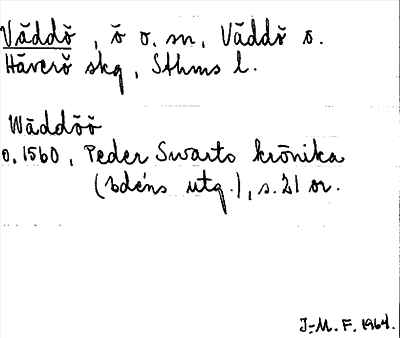 Väddö, ö o. sn, Väddö o.
Häverö skg, Sthms l.
Wäddöö
o. 1560, Peder Swarts krönika
(Edéns utg.), s. 21 or.
J.-M. F. 1964.